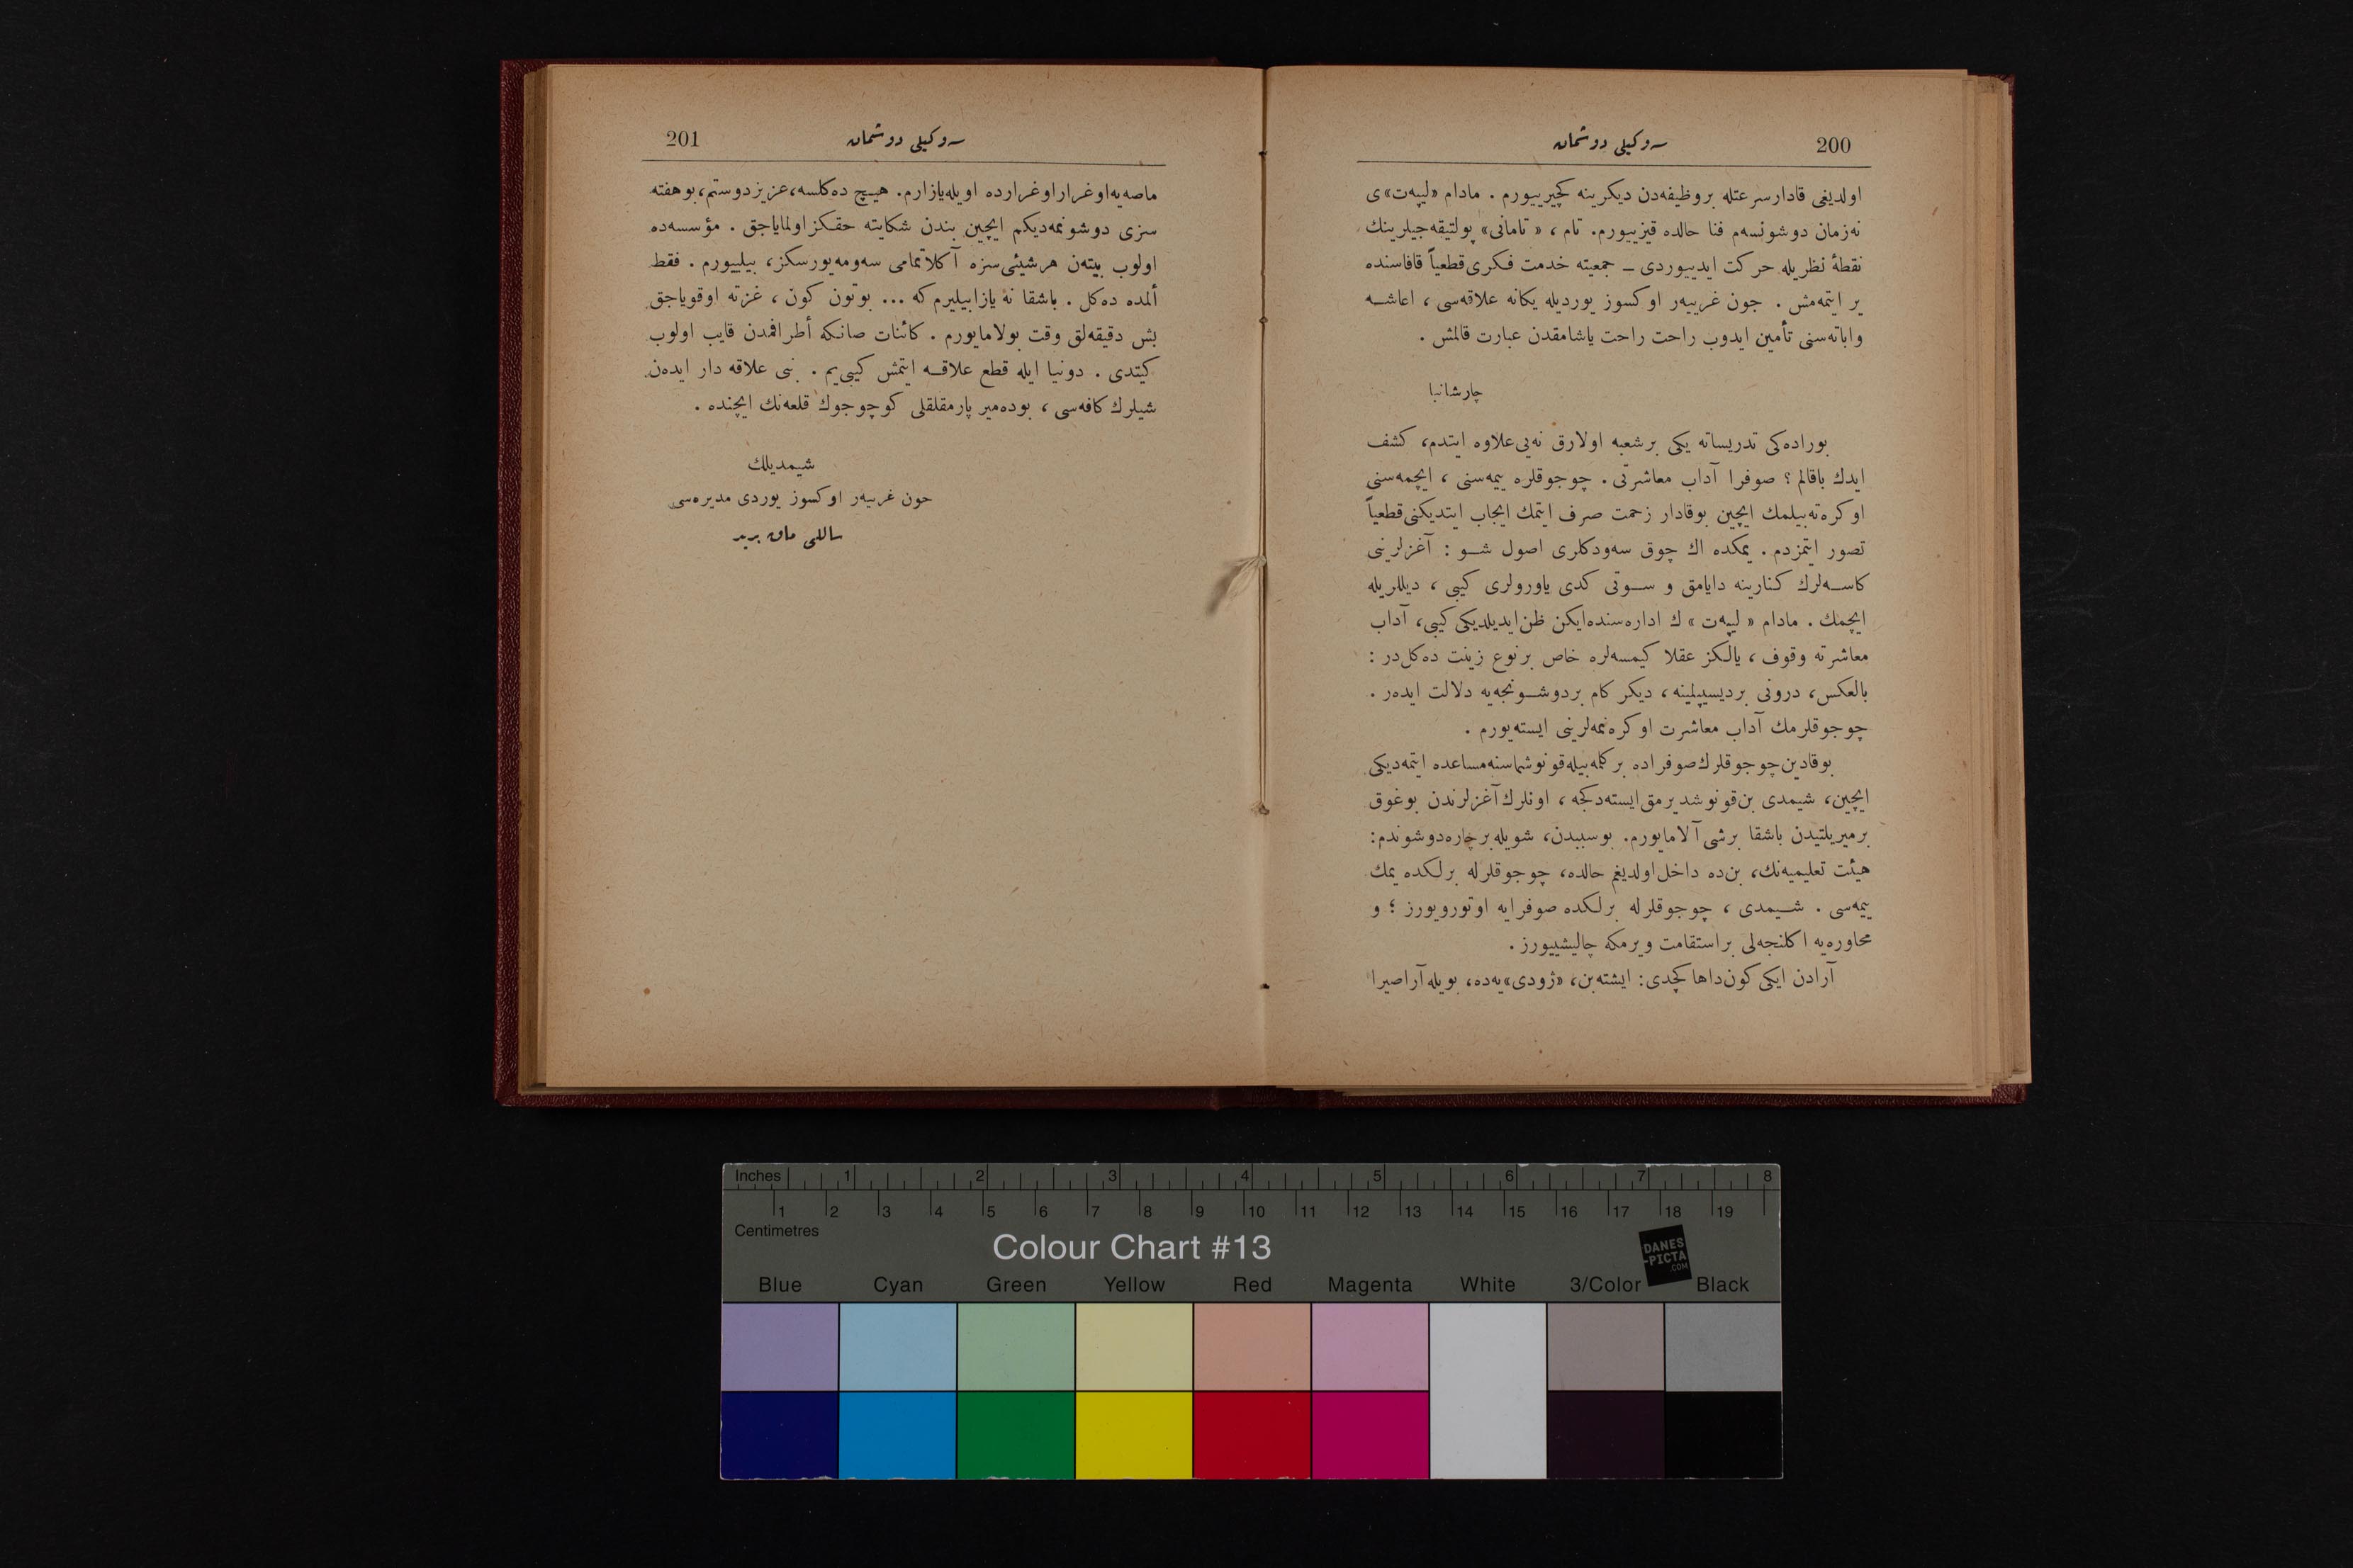 200
سه‌وكيلى دوشمان
اولديغى قادار سرعتله بر وظيفه‌دن ديكرينه كچيرييورم . مادام «ليپه‌ت» ى
نه‌زمان دوشونسه‌م فنا حالده قيزييورم. تام ، « تامانى» پولتيقه‌جيلرينك
نقطهٔ نظريله حركت ايدييوردى ــ جمعيته خدمت فكرى قطعياً قافاسنده
ير ايتمه‌مش . جون غرييه‌ر اوكسوز يورديله يكانه علاقه‌سى ، اعاشه
واباته‌سنى تأمين ايدوب راحت راحت ياشامقدن عبارت قالمش .
چارشانبا
بوراده‌كى تدريساته يكى بر شعبه اولارق نه‌يى علاوه ايتدم، كشف
ايدك باقالم ؟ صوفرا آداب معاشرتى . چوجوقلره ييمه‌سنى ، ايچمه‌سنى
اوكره‌ته‌بيلمك ايچين بوقادار زحمت صرف ايتمك ايجاب ايتديكنى قطعياً
تصور ايتمزدم . يمكده اك چوق سه‌ودكلرى اصول شو : آغزلرينى
كاسه‌لرك كنارينه دايامق و سوتى كدى ياورولرى كيبى ، ديللريله
ايچمك . مادام « ليپه‌ت » ك اداره‌سنده‌ايكن ظن ايديلديكى كيبى، آداب
معاشرته وقوف ، يالكز عقلا كيمسه‌لره خاص بر نوع زينت ده‌كل‌در :
بالعكس، درونى بر ديسيپلينه ، ديكر كام بر دوشونجه‌يه دلالت ايده‌ر .
چوجوقلرمك آداب معاشرت اوكره‌نمه‌لرينى ايسته‌يورم .
بوقادين چوجوقلرك صوفراده بر كلمه بيله قونوشماسنه مساعده ايتمه‌ديكى
ايچين، شيمدى بن قونوشديرمق ايسته‌دكجه ، اونلرك آغزلرندن بوغوق
بر ميريلتيدن باشقا بر شى آلامايورم. بو سببدن، شويله بر چاره دوشوندم:
هيئت تعليميه‌نك، بن ده داخل اولديغم حالده، چوجوقلرله برلكده يمك
ييمه‌سى . شيمدى ، چوجوقلرله برلكده صوفرايه اوتورويورز ؛ و
محاوره‌يه اكلنجه‌لى بر استقامت ويرمكه چاليشييورز .
آرادن ايكى كون داها كچدى: ايشته بن، «ژودى» يه‌ده، بويله آراصيرا
201
سه‌وكيلى دوشمان
ماصه‌يه اوغرار اوغرارده اويله يازارم. هيچ ده‌كلسه، عزيز دوستم، بو هفته
سزى دوشونمه‌ديكم ايچين بندن شكايته حقكز اولماياجق . مؤسسه‌ده
اولوب بيته‌ن هر شيئى سزه آكلاتمامى سه‌ومه‌يورسكز، بيلييورم . فقط
ألمده ده‌كل . باشقا نه يازابيليرم كه ... بوتون كون ، غزته اوقوياجق
بش دقيقه‌لق وقت بولامايورم . كائنات صانكه أطرافمدن قايب اولوب
كيتدى . دونيا ايله قطع علاقه ايتمش كيبى‌يم . بنى علاقه دار ايده‌ن
شيلرك كافه‌سى ، بو ده‌مير پارمقلقلى كوچوجوك قلعه‌نك ايچنده .
شيمديلك
جون غرييه‌ر اوكسوز يوردى مديره‌سى
ساللى ماق بريد
Inches 1 2 3 4 5 6 7 8
1 2 3 4 5 6 7 8 9 10 11 12 13 14 15 16 17 18 19
Centimetres
Colour Chart #13
DANES
-PICTA
.COM
Blue Cyan Green Yellow Red Magenta White 3/Color Black